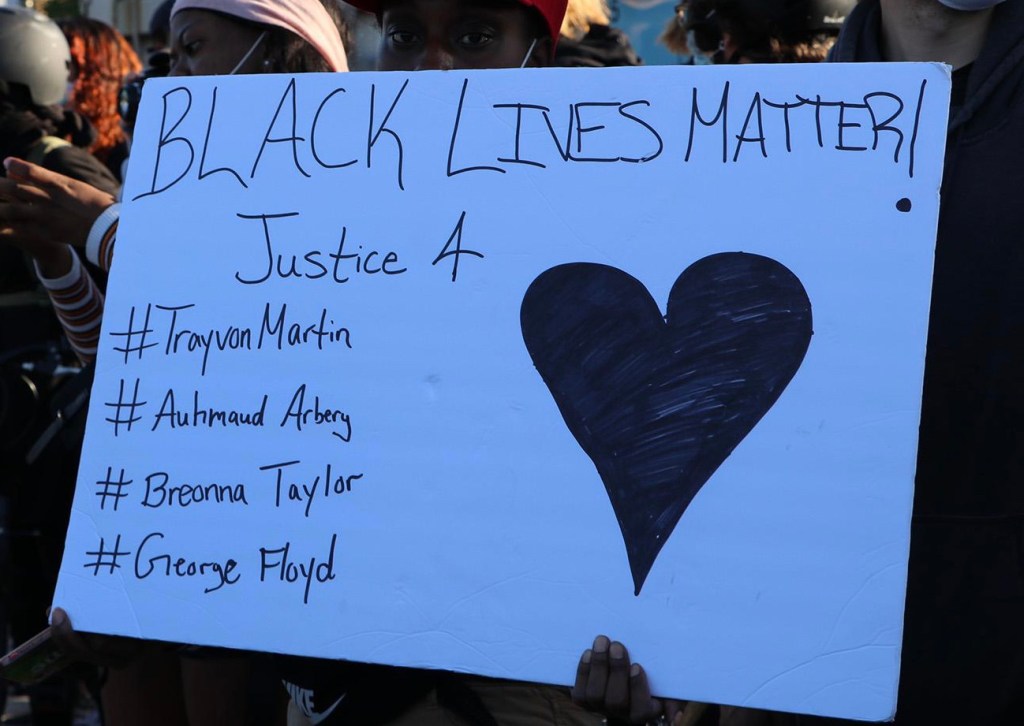 BLACK LIVES MATTER!
Justice 4
#TrayvonMartin
# Auhmaud Arbery
# Breonna Taylor
# George Floyd
NIKE